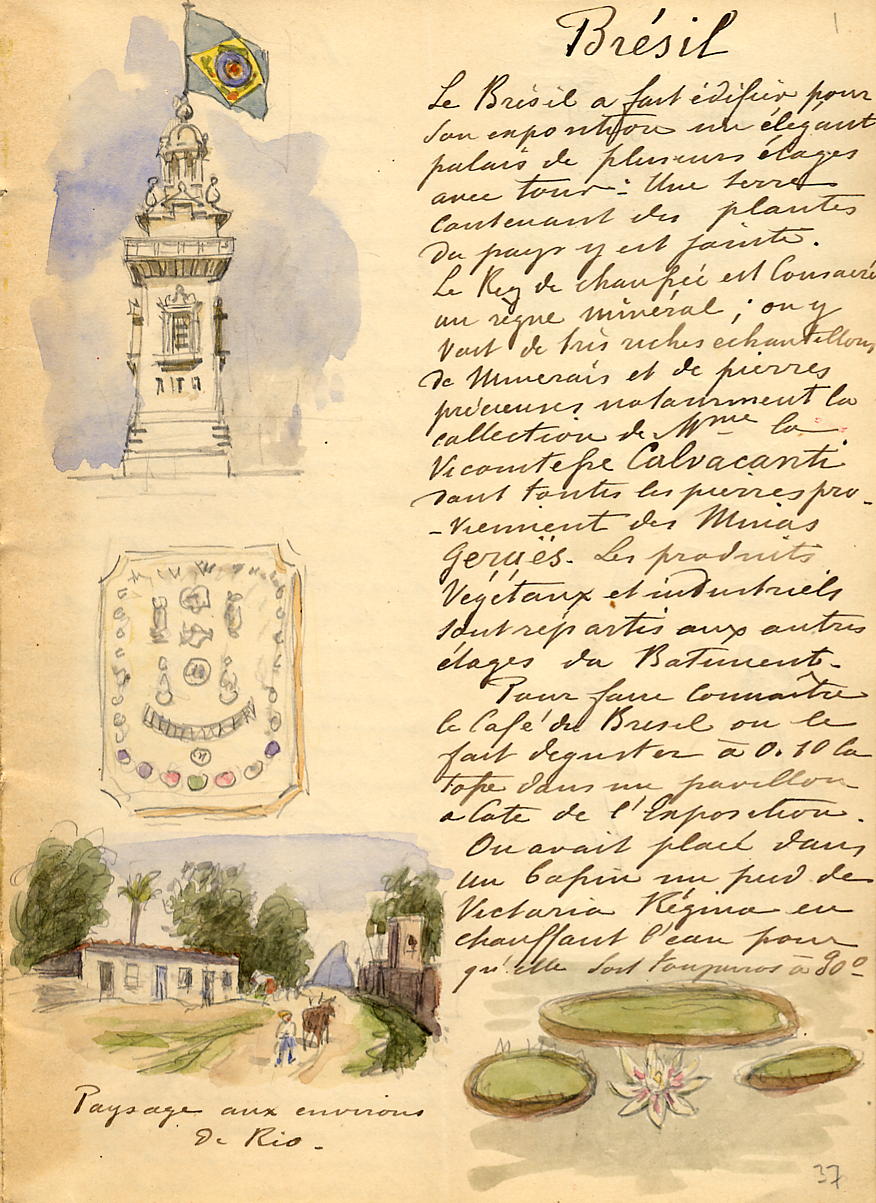 Brésil
Le Brésil a fait édifier pour
son exposition un élégant
palais de plusieurs étages
avec tour : Une serre
contenant des plantes
du pays y est jointe.
Le Rez de chaussée est Consacré
au règne minéral ; on y
voit de très riches echantillons
de Minerais et de pierres
précieuses notamment la
collection de Mme la
Vicomtesse Calvacanti
dont toutes les pierres pro-
-viennent des Minas
Geraës. Les produits
Végétaux et industriels
sont répartis aux autres
étages du Batiment.
Pour faire connaître
le Café du Bresil on le
fait deguster à 0.10 la
tasse dans un pavillon
a Coté de l'Exposition.
On avait placé dans
un bassin un pied de
Victoria Régina en
chauffant l'eau pour
qu'elle soit toujours à 30°
Paysage aux environs
de Rio.
37